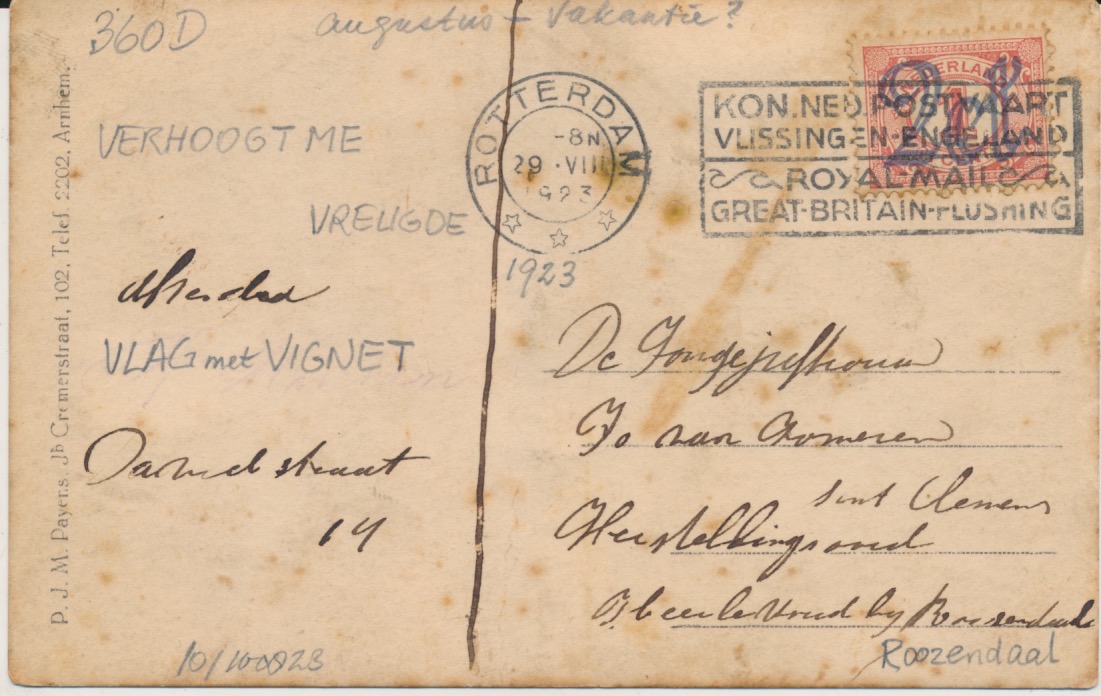 360D
augustus - vakantie?
P. J. M. Payens, Jb Cremerstraat, 102, Telef. 2202, Arnhem.
VERHOOGT ME
VREUGDE
VLAG met VIGNET
straat
14
10/100823
ROTTERDAM
-8N
29 .VIII
1923
1923
NEDERLAND
2ct
KON.NED.POSTVAART
VLISSINGEN-ENGELAND
ROYAL MAIL
GREAT-BRITAIN-FLUSHING
De Jongejuffrouw
Jo van Zomeren
Sint Clemens
Herstellingsoord
by Roosendaal
Roozendaal